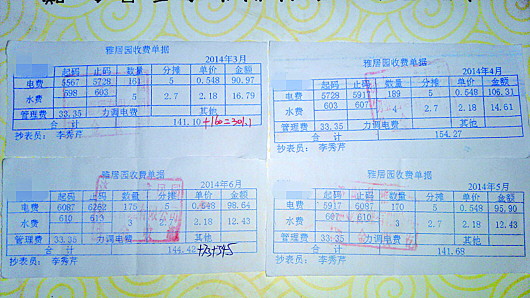 雅居园收费单据
2014年3月
起码 止码 数量 分摊 单价 金额
电费 5567 5728 161 5 0.548 90.97
水费 598 603 5 2.7 2.18 16.79
管理费 33.35 力调电费 其他
合计 141.10 +160=301.1
抄表员: 李秀芹
雅居园收费单据
2014年4月
起码 止码 数量 分摊 单价 金额
电费 5728 5917 189 5 0.548 106.31
水费 603 607 4 2.7 2.18 14.61
管理费 33.35 力调电费 其他
合计 154.27
抄表员: 李秀芹
雅居园收费单据
2014年6月
起码 止码 数量 分摊 单价 金额
电费 6087 6262 175 5 0.548 98.64
水费 610 613 3 2.7 2.18 12.43
管理费 33.35 力调电费 其他
合计 144.42
抄表员: 李秀芹
雅居园收费单据
2014年5月
起码 止码 数量 分摊 单价 金额
电费 5917 6087 170 5 0.548 95.90
水费 607 610 3 2.7 2.18 12.43
管理费 33.35 力调电费 其他
合计 141.68
抄表员: 李秀芹